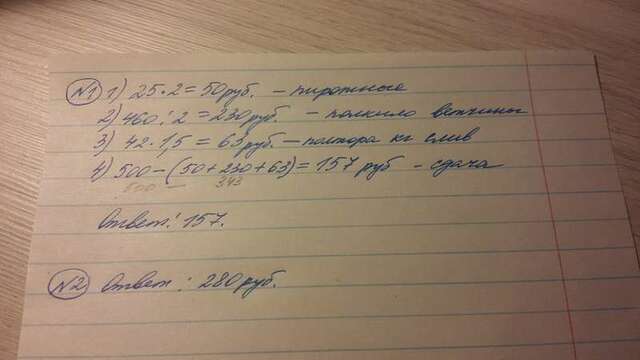 №1 1) 25·2=50руб. – пирожные
2) 460:2=230руб. – полкило ветчины
3) 42·1,5=63руб. – полтора кг слив
4) 500–(50+230+63)=157 руб – сдача
500 – 343
Ответ: 157.
№2 Ответ: 280руб.